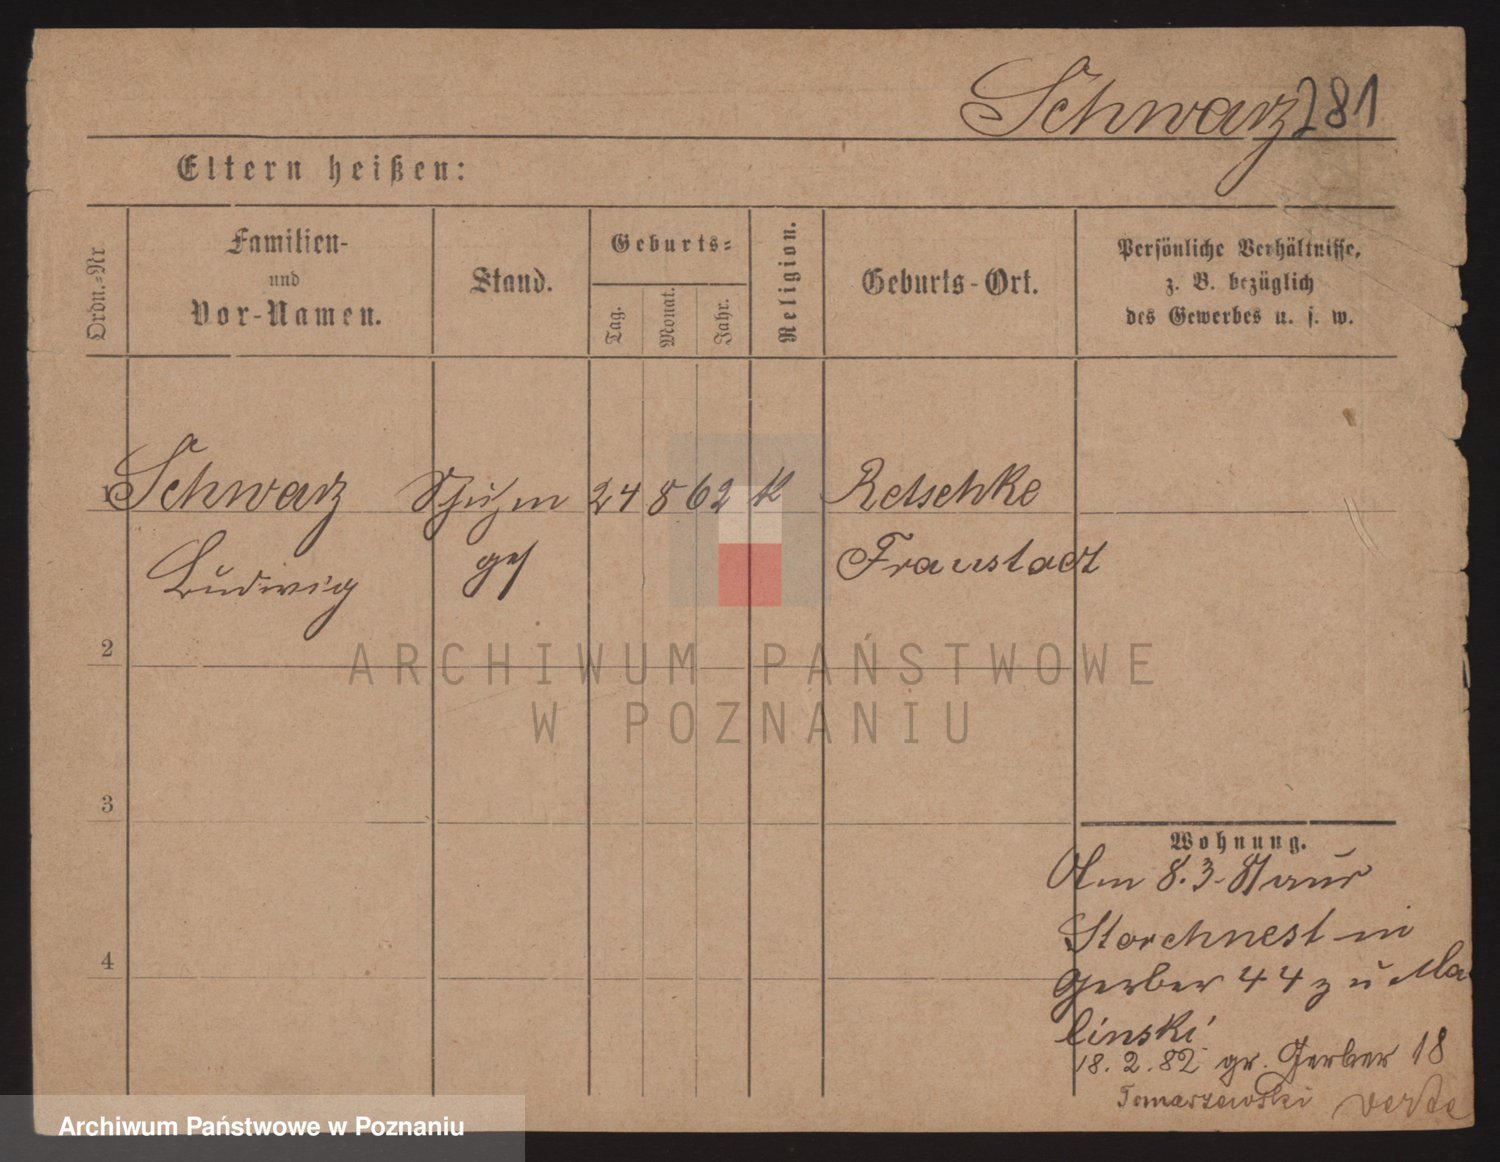 Schwarz 281
Eltern heißen:
Ordn.-Nr
Familien-
und
Vor-Namen.
Stand.
Geburts-
Tag.
Monat.
Jahr.
Religion.
Geburts-Ort.
Persönliche Verhältnisse,
z. B. bezüglich
des Gewerbes u. s. w.
1 Schwarz 24 8 62 K Retschke
Ludwig Fraustadt
2
3
4
ARCHIWUM PAŃSTWOWE
W POZNANIU
Wohnung.
Am 8.3.81 aus
Storchnest in
Gerber 44 zu Ma
linski
18.2.82 gr. Gerber 18
Tomaszewski verte
Archiwum Państwowe w Poznaniu